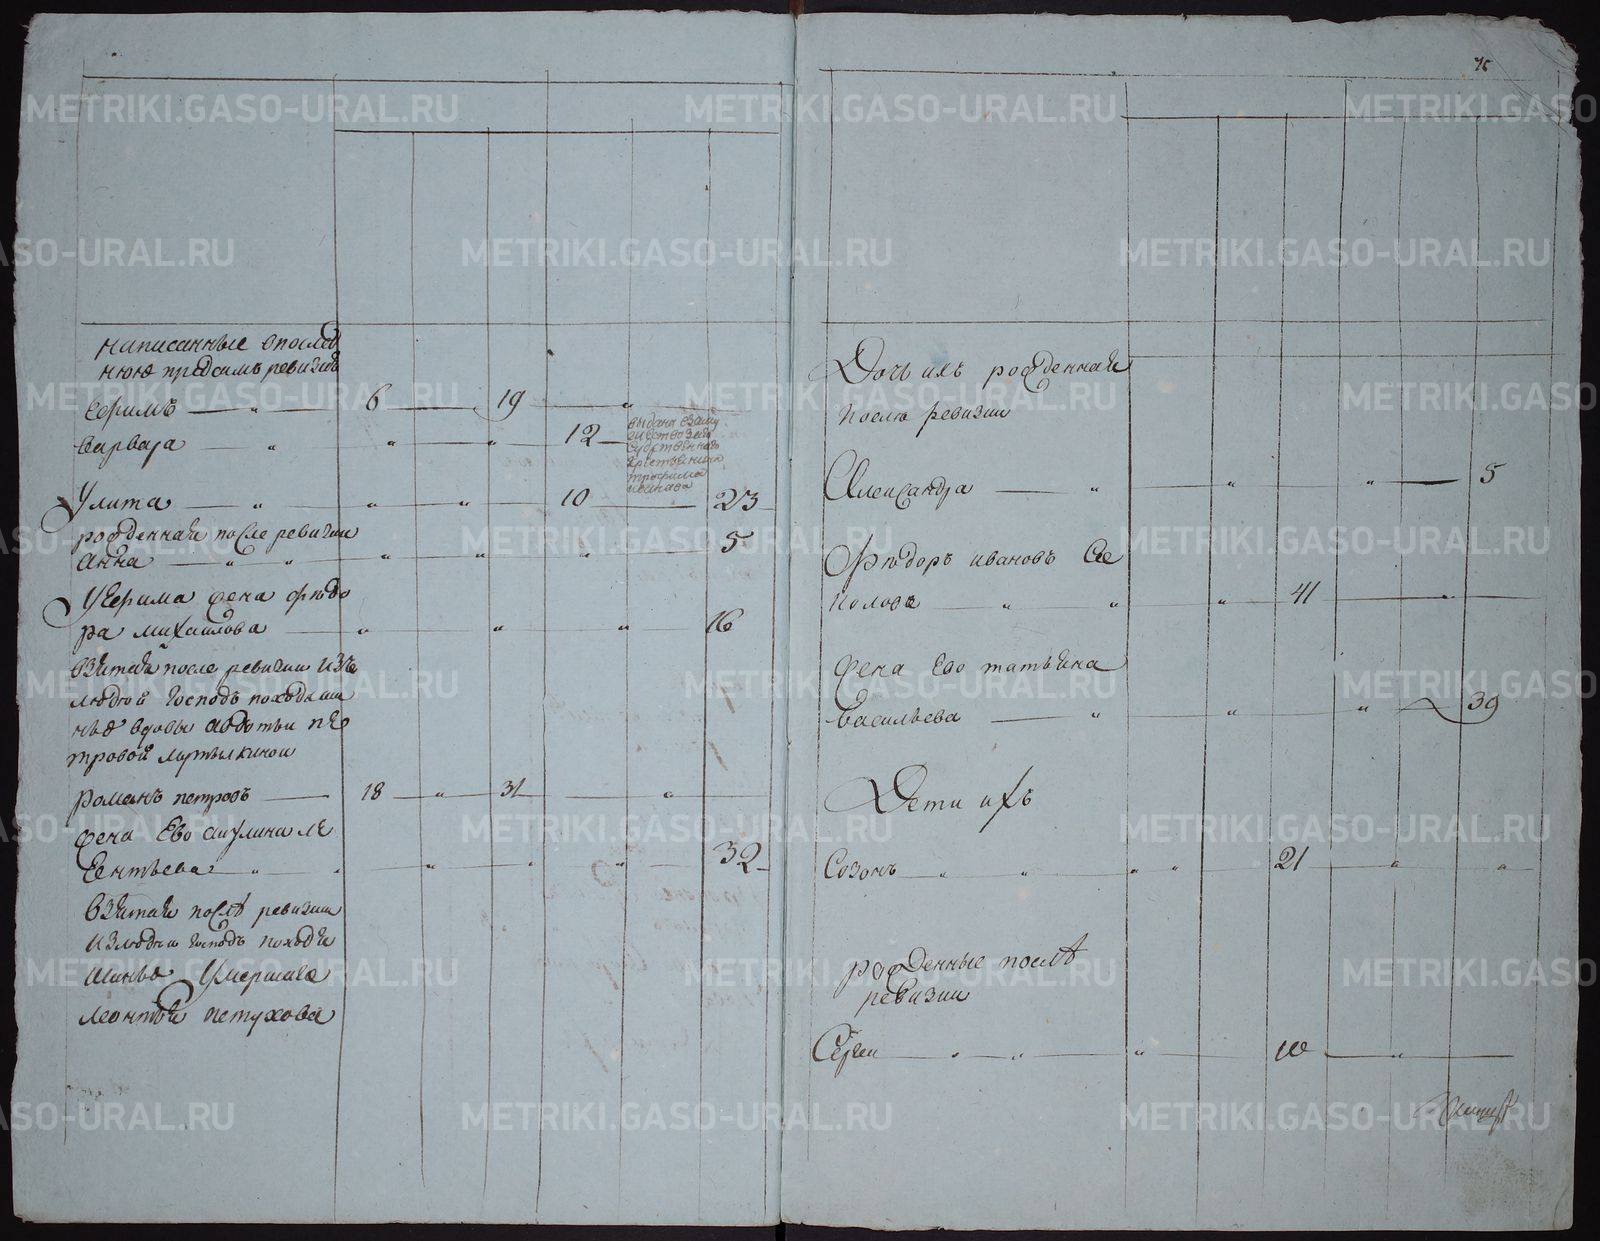 написанные впослед
нюю предсимъ ревизию
Ефимъ — " — 6 — 19 — "
варвара " " " 12
выдана взаму
жество
крестьянина
трофима
иванова
Улита — " — " — " — 10 — 23
рожденная после ревизии
анна — " " " " " 5
УЕфима жена федо
ра михайлова — " — " — " — 16
взятая после ревизии изъ
людей господъ походяши
ныхъ вдовы авдотьи пе
тровой
романъ петровъ — 18 — " — 31 — "
жена Ево акулина ле
вентьева " " " " " 32
взятая послѣ ревизии
излюдей господъ походя
шиныхъ Умершаго
леонтья петухова
76
Дочь ихъ рожденная
после ревизии
Александра — " — " — " — 5
Федоръ ивановъ
" " " 41 — "
жена Ево татьяна
васильева — " — " — " — 39
Дети ихъ
Созонъ " " " " 21 — " — "
рожденные послѣ
ревизии
Сергеи — " — " — " — 10 — "